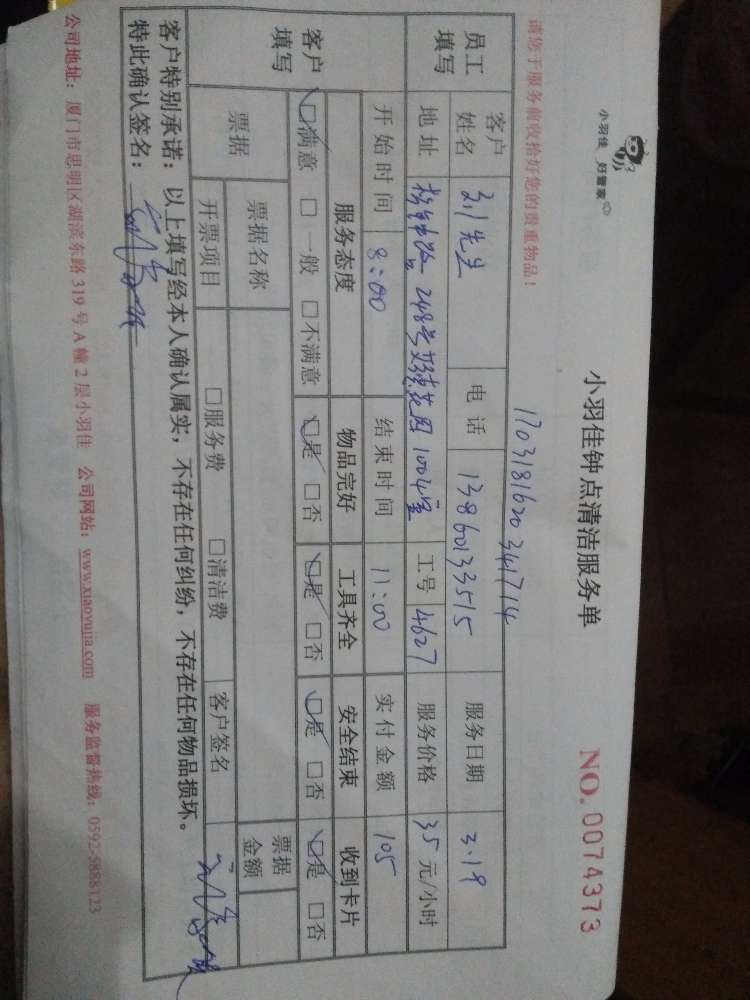 小羽佳 好管家
小羽佳钟点清洁服务单
NO. 0074373
请您于服务前收拾好您的贵重物品！
170318162034 1714
员工填写 客户姓名 刘先生 电话 13860133515 服务日期 3.19
地址 248号 花园1004室 工号 4627 服务价格 35 元/小时
客户填写 开始时间 8:00 结束时间 11:00 实付金额 105
服务态度 物品完好 工具齐全 安全结束 收到卡片
☑满意 □一般 □不满意 ☑是 □否 ☑是 □否 ☑是 □否 ☑是 □否
票据 票据名称 票据金额
开票项目 □服务费 □清洁费 客户签名
客户特别承诺：以上填写经本人确认属实，不存在任何纠纷，不存在任何物品损坏。
特此确认签名：
公司地址：厦门市思明区湖滨东路319号A幢2层小羽佳 公司网站：www.xiaoyujia.com 服务监督热线：0592-5888123